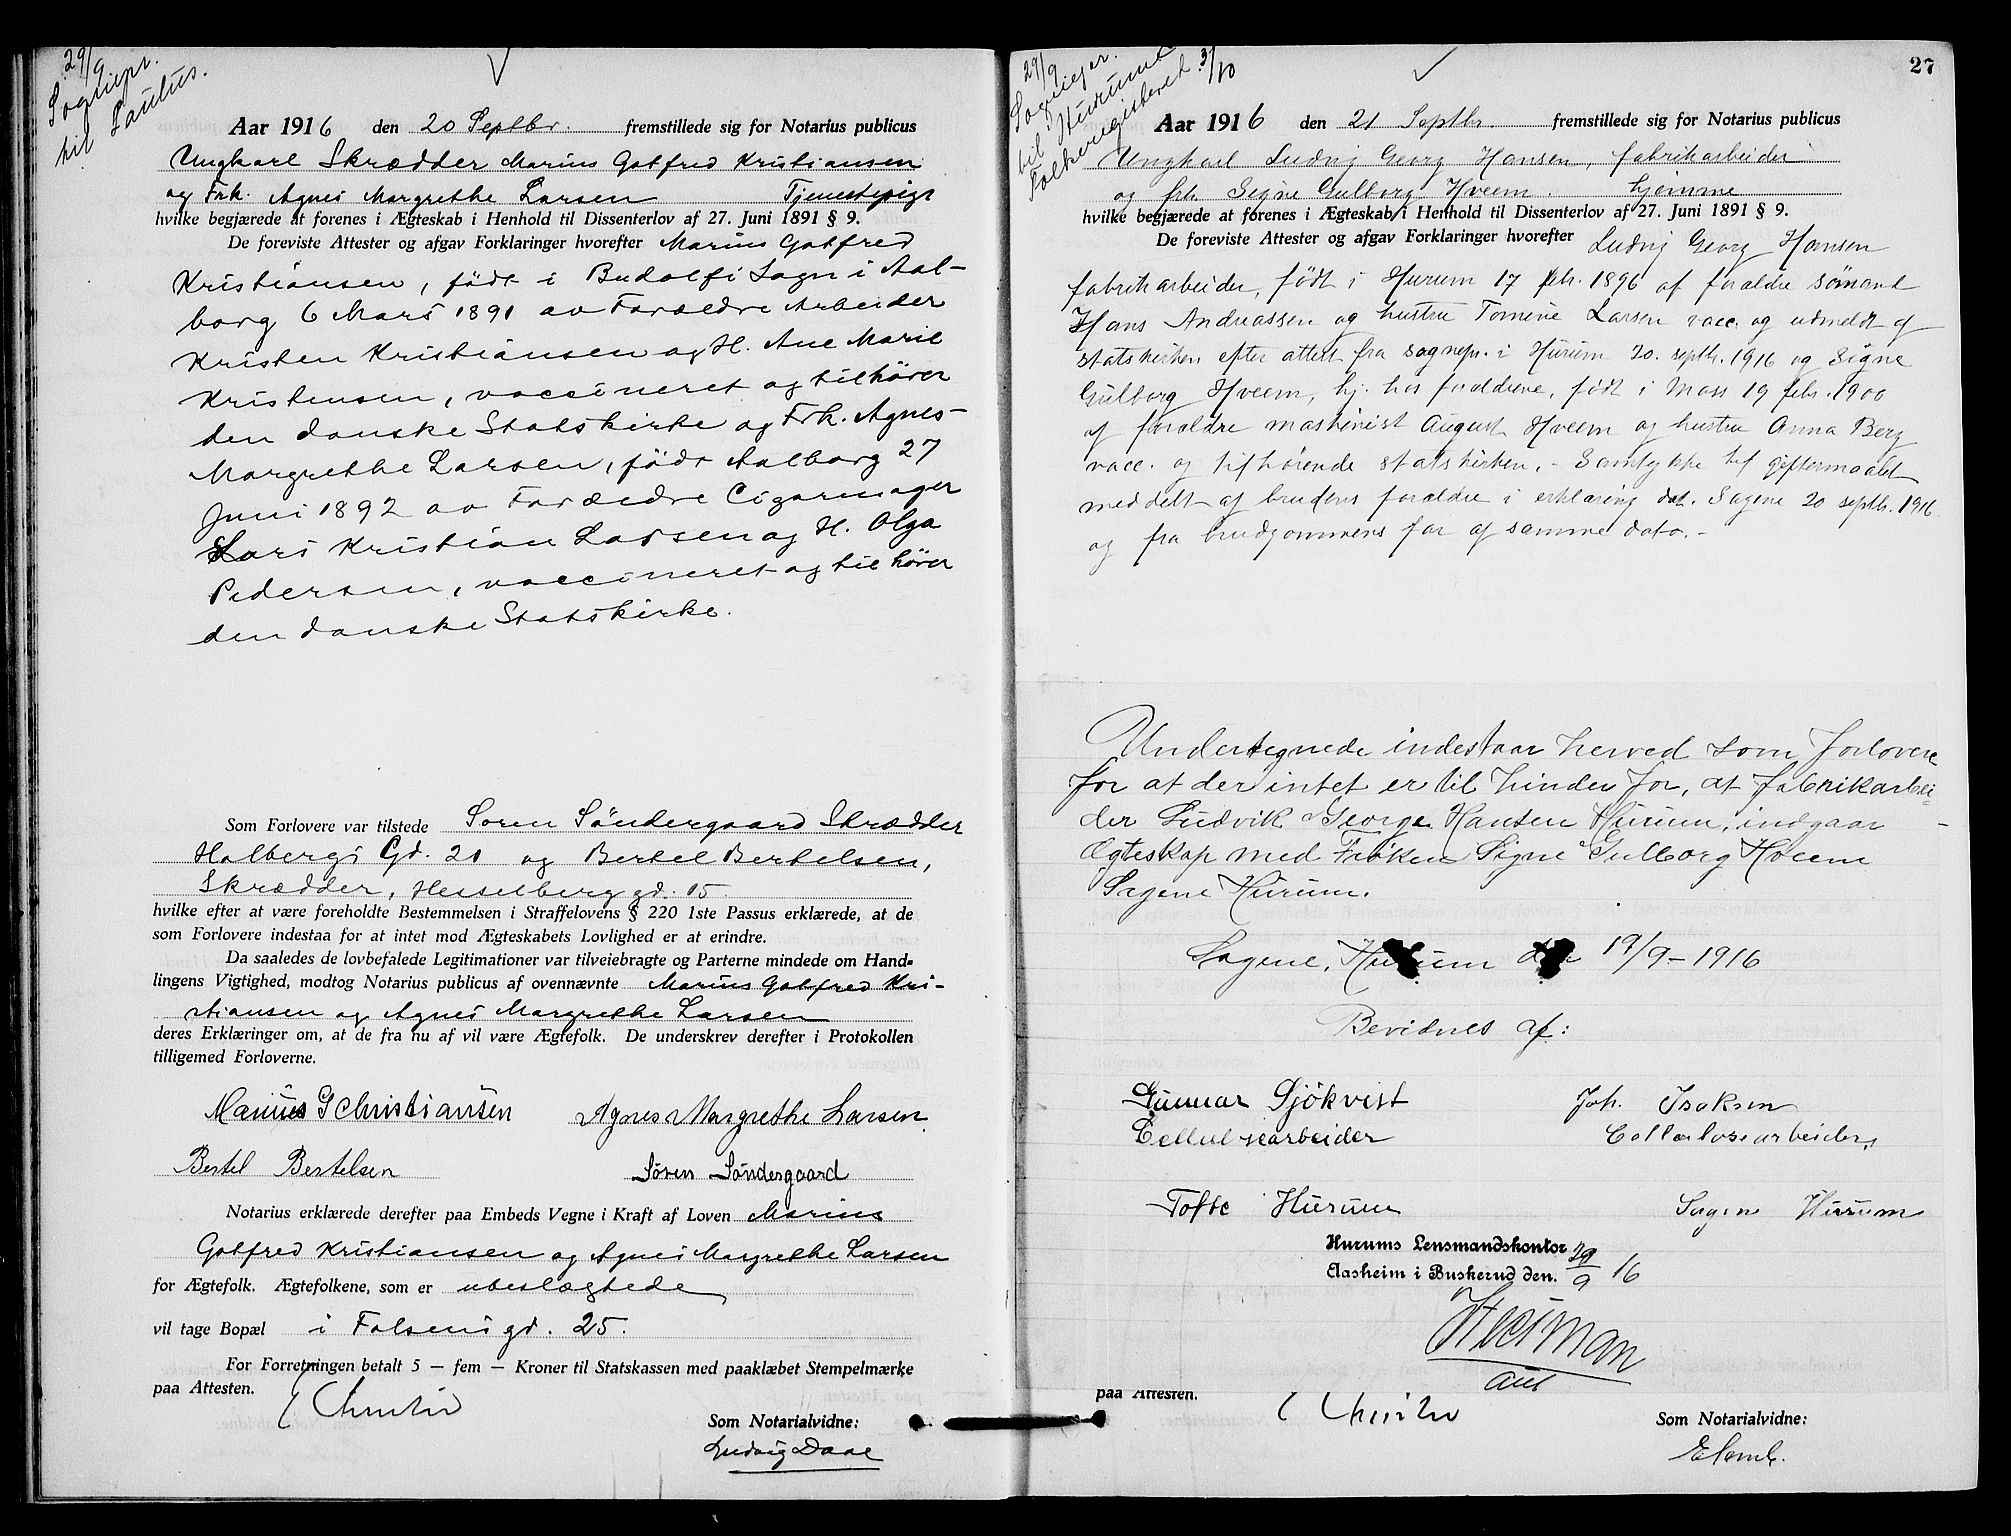 29/9
Sognepr.
til Paulus.
Aar 1916 den 20 Septbr. fremstillede sig for Notarius publicus
Ungkarl Skrædder Marius Gotfred Kristiansen
og Frk. Agnes Margrethe Larsen Tjenestepige
hvilke begjærede at forenes i Ægteskab i Henhold til Dissenterlov af 27. Juni 1891 § 9.
De foreviste Attester og afgav Forklaringer hvorefter Marius Gotfred
Kristiansen, født i Budolfi Sogn i Aal-
borg 6 Mars 1891 av Forældre Arbeider
Kristen Kristiansen og H. Ane Marie
Kristensen, vaccineret og tilhører
den danske Statskirke og Frk. Agnes
Margrethe Larsen, født Aalborg 27
Juni 1892 av Forældre Cigarmager
Lars Kristian Larsen og H. Olga
Pedersen, vaccineret og tilhører
den danske Statskirke.
Som Forlovere var tilstede Soren Söndergaard Skrædder
Holbergs Gd. 21 og Bertel Bertelsen,
Skrædder, Hesselberg gd. 15
hvilke efter at være foreholdte Bestemmelsen i Straffelovens § 220 1ste Passus erklærede, at de
som Forlovere indestaa for at intet mod Ægteskabets Lovlighed er at erindre.
Da saaledes de lovbefalede Legitimationer var tilveiebragte og Parterne mindede om Hand-
lingens Vigtighed, modtog Notarius publicus af ovennævnte Marius Gotfred Kri-
stiansen og Agnes Margrethe Larsen
deres Erklæringer om, at de fra nu af vil være Ægtefolk. De underskrev derefter i Protokollen
tilligemed Forloverne.
Marius G Christiansen Agnes Margrethe Larsen
Bertel Bertelsen Søren Söndergaard
Notarius erklærede derefter paa Embeds Vegne i Kraft af Loven Marius
Gotfred Kristiansen og Agnes Margrethe Larsen
for Ægtefolk. Ægtefolkene, som er ubeslægtede
vil tage Bopæl i Falsens gd. 25.
For Forretningen betalt 5 — fem — Kroner til Statskassen med paaklæbet Stempelmærke
paa Attesten.
Som Notarialvidne:
Ludvig Daae
27
29/9
Sognepr.
til Hurum
Folkeregisteret 3/10
Aar 1916 den 21 Septbr. fremstillede sig for Notarius publicus
Ungkarl Ludvig Georg Hansen, fabrikarbeider
og frk. Signe Gulborg Hveem. hjemme
hvilke begjærede at forenes i Ægteskab i Henhold til Dissenterlov af 27. Juni 1891 § 9.
De foreviste Attester og afgav Forklaringer hvorefter Ludvig Georg Hansen
fabrikarbeider, født i Hurum 17 febr. 1896 af forældre sømand
Hans Andreassen og hustru Tomine Larsen vacc. og udmeldt af
statskirken efter attest fra sognepr. i Hurum 20. septbr. 1916 og Signe
Gulborg Hveem, hj. hos forældrene, født i Moss 19 febr. 1900
af forældre maskinist August Hveem og hustru Anna Berg
vacc. og tilhørende statskirken. - Samtykke til giftermaalet
meddelt af brudens forældre i erklæring dat. Sagene 20 septbr. 1916
og fra brudgommens far af samme dato. -
Undertegnede indestaar herved som Forlovere
for at der intet er til hinder for, at fabrikarbei-
der Ludvik George Hansen Hurum, indgaar
Ægteskap med Frøken Signe Gulborg Hveem
Sagene Hurum.
Sagene, Hurum den 19/9-1916
Bevidnes af:
Gunnar Sjökvist Joh. Isaksen
Cellulosearbeider Cellulosearbeider
Tofte Hurum Sagene Hurum
Hurums Lensmandskontor
Aasheim i Buskerud den. 20/9 16
paa Attesten.
Som Notarialvidne: